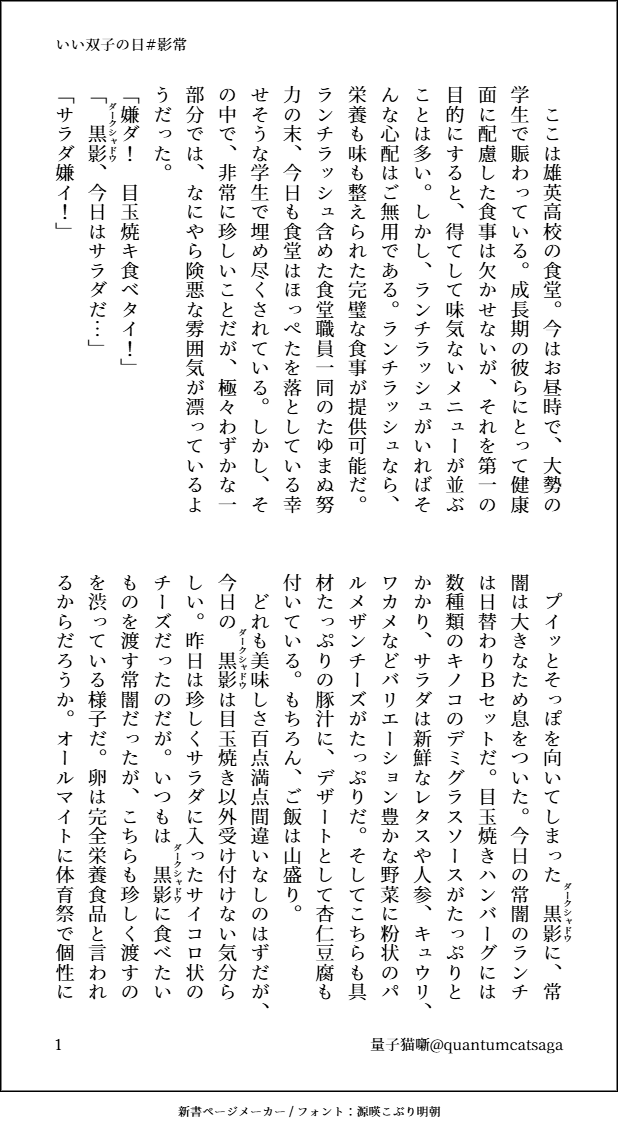 いい双子の日#影常
　ここは雄英高校の食堂。今はお昼時で、大勢の
学生で賑わっている。成長期の彼らにとって健康
面に配慮した食事は欠かせないが、それを第一の
目的にすると、得てして味気ないメニューが並ぶ
ことは多い。しかし、ランチラッシュがいればそ
んな心配はご無用である。ランチラッシュなら、
栄養も味も整えられた完璧な食事が提供可能だ。
ランチラッシュ含めた食堂職員一同のたゆまぬ努
力の末、今日も食堂はほっぺたを落としている幸
せそうな学生で埋め尽くされている。しかし、そ
の中で、非常に珍しいことだが、極々わずかな一
部分では、なにやら険悪な雰囲気が漂っているよ
うだった。
「嫌ダ！　目玉焼キ食ベタイ！」
ダークシャドウ
「黒影、今日はサラダだ…」
「サラダ嫌イ！」
ダークシャドウ
　プイッとそっぽを向いてしまった黒影に、常
闇は大きなため息をついた。今日の常闇のランチ
は日替わりＢセットだ。目玉焼きハンバーグには
数種類のキノコのデミグラスソースがたっぷりと
かかり、サラダは新鮮なレタスや人参、キュウリ、
ワカメなどバリエーション豊かな野菜に粉状のパ
ルメザンチーズがたっぷりだ。そしてこちらも具
材たっぷりの豚汁に、デザートとして杏仁豆腐も
付いている。もちろん、ご飯は山盛り。
　どれも美味しさ百点満点間違いなしのはずだが、
ダークシャドウ
今日の黒影は目玉焼き以外受け付けない気分ら
しい。昨日は珍しくサラダに入ったサイコロ状の
ダークシャドウ
チーズだったのだが。いつもは黒影に食べたい
ものを渡す常闇だったが、こちらも珍しく渡すの
を渋っている様子だ。卵は完全栄養食品と言われ
るからだろうか。オールマイトに体育祭で個性に
1
量子猫噺@quantumcatsaga
新書ページメーカー / フォント：源暎こぶり明朝